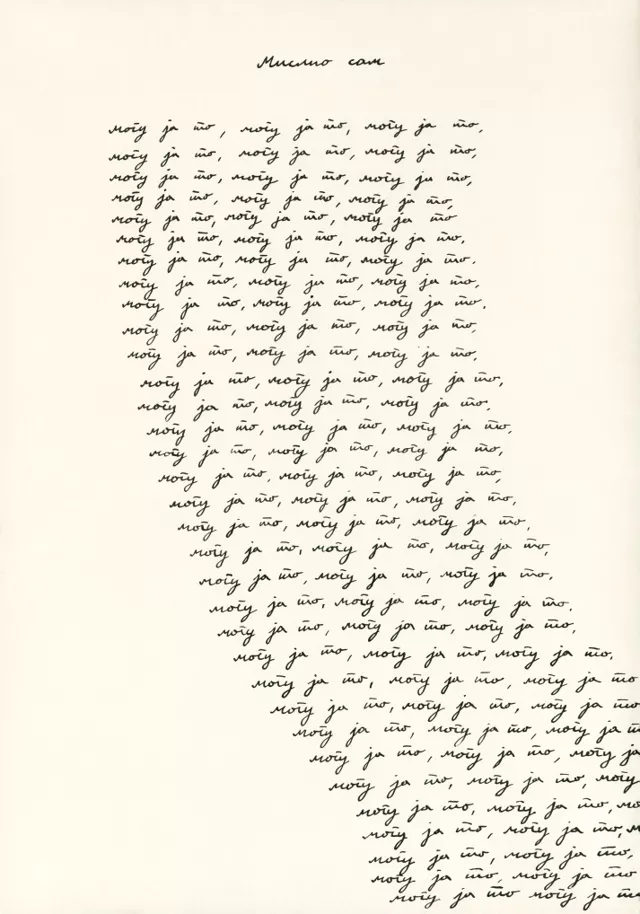 Мислио сам
могу ја то, могу ја то, могу ја то,
могу ја то, могу ја то, могу ја то,
могу ја то, могу ја то, могу ја то,
могу ја то, могу ја то, могу ја то,
могу ја то, могу ја то, могу ја то
могу ја то, могу ја то, могу ја то,
могу ја то, могу ја то, могу ја то.
могу ја то, могу ја то, могу ја то,
могу ја то, могу ја то, могу ја то,
могу ја то, могу ја то, могу ја то,
могу ја то, могу ја то, могу ја то,
могу ја то, могу ја то, могу ја то,
могу ја то, могу ја то, могу ја то,
могу ја то, могу ја то, могу ја то,
могу ја то, могу ја то, могу ја то,
могу ја то, могу ја то, могу ја то,
могу ја то, могу ја то, могу ја то,
могу ја то, могу ја то, могу ја то,
могу ја то, могу ја то, могу ја то,
могу ја то, могу ја то, могу ја то,
могу ја то, могу ја то, могу ја то,
могу ја то, могу ја то, могу ја то,
могу ја то, могу ја то, могу ја то,
могу ја то, могу ја то, могу ја то
могу ја то, могу ја то, могу ја то
могу ја то, могу ја то, могу ја
могу ја то, могу ја то, могу ја
могу ја то, могу ја то, могу
могу ја то, могу ја то, мо
могу ја то, могу ја то, м
могу ја то, могу ја то,
могу ја то, могу ја то
могу ја то могу ја